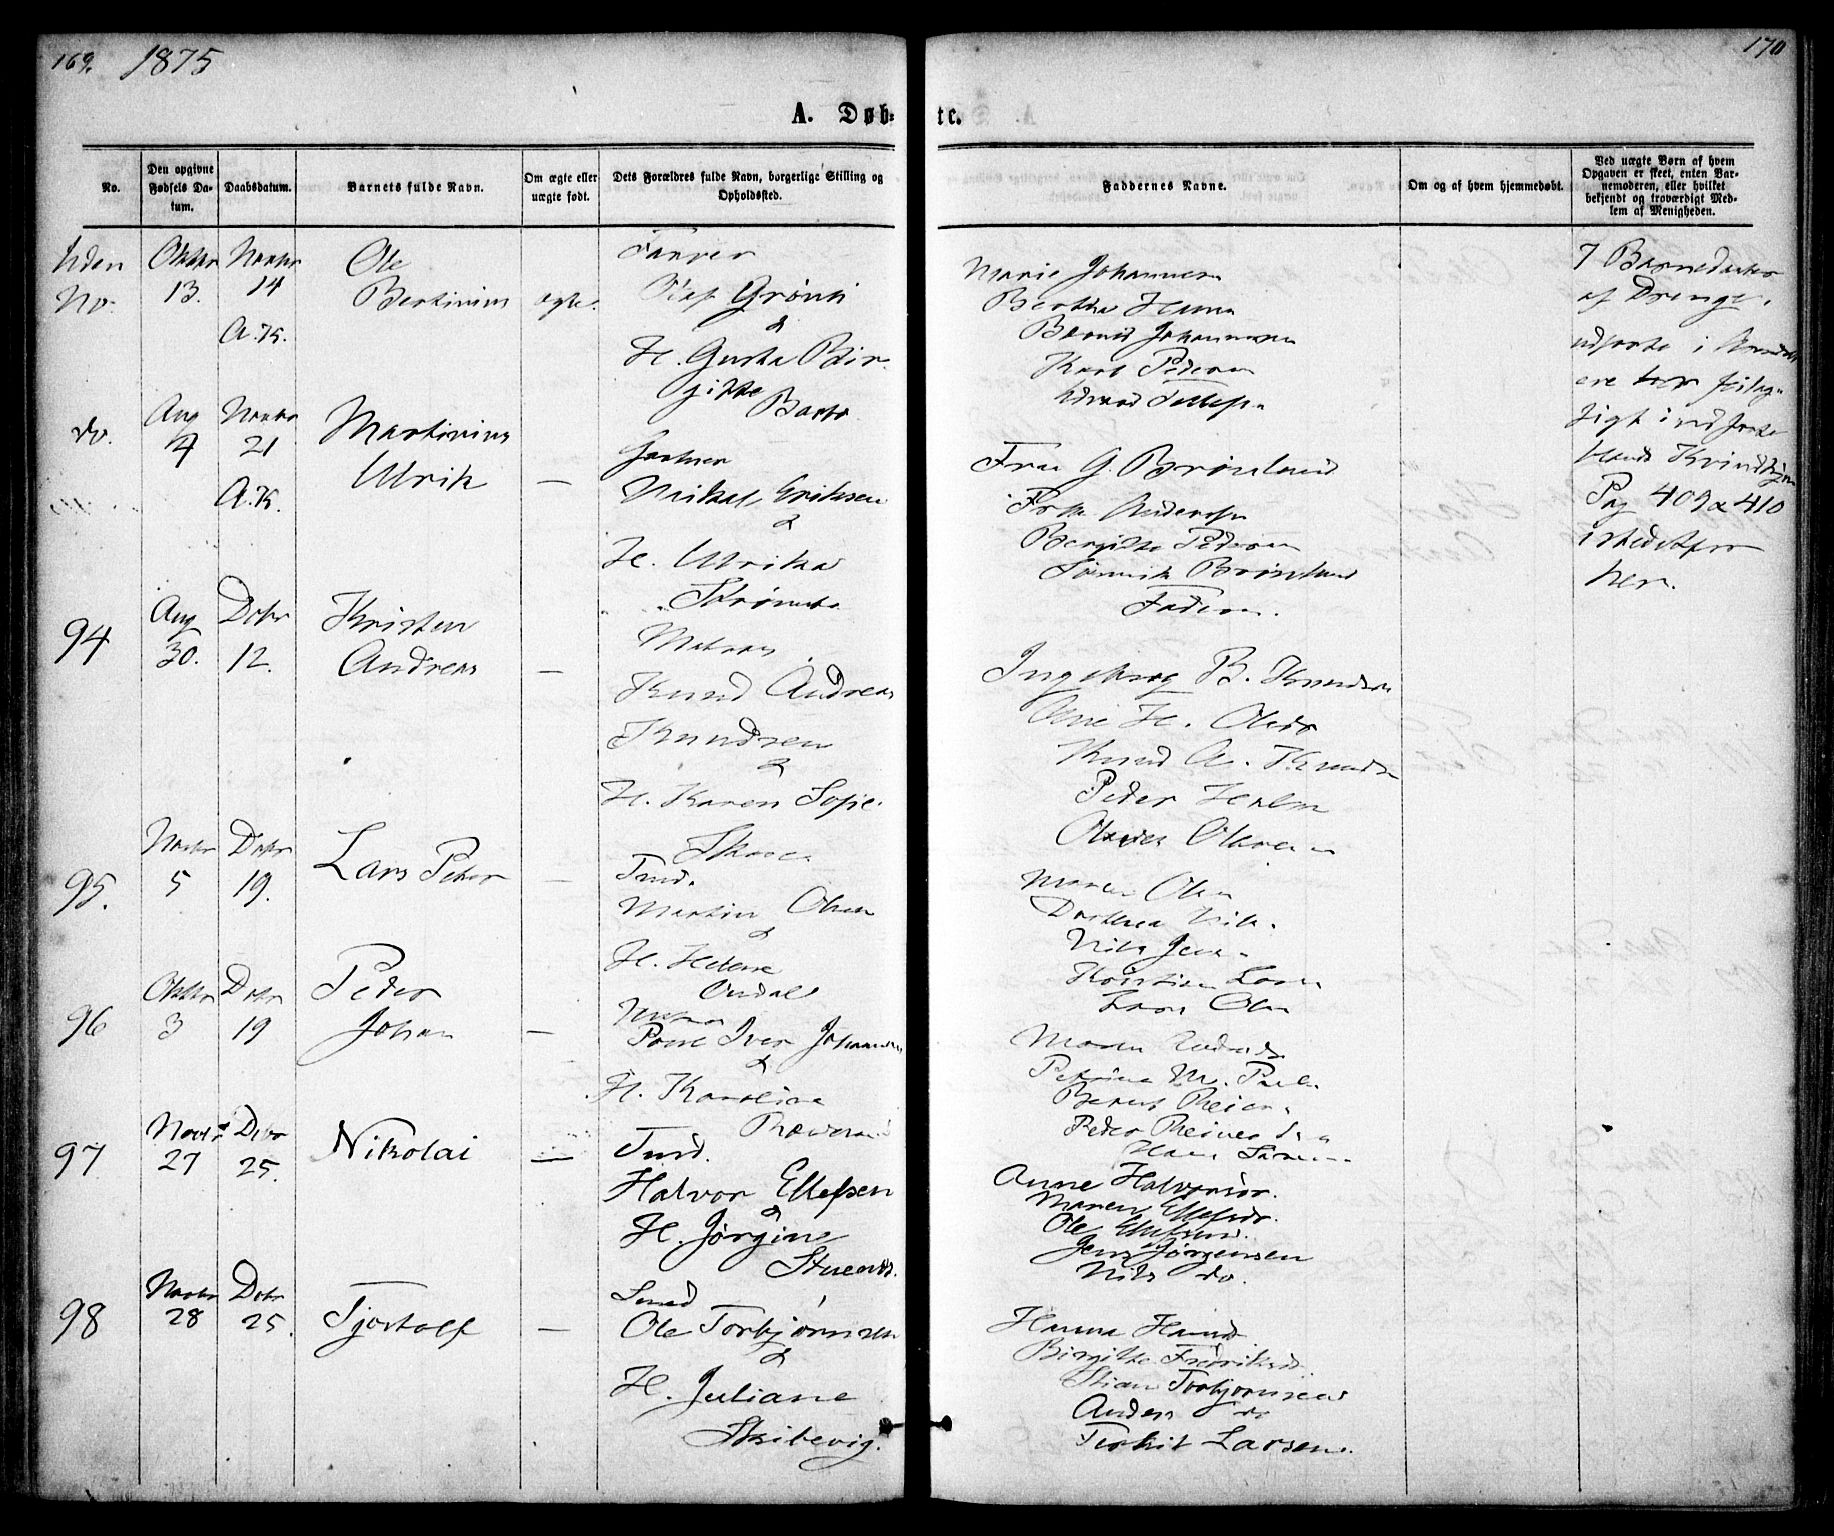 169. 1875
170
A. Døb-
te.
No.
Den opgivne Fødsels Da-
tum.
Daabsdatum.
Barnets fulde Navn.
Om ægte eller
uægte født.
Dets Forældres fulde Navn, borgerlige Stilling og
Opholdssted.
Faddernes Navne.
Om og af hvem hjemmedøbt.
Ved uægte Børn af hvem
Opgaven er skeet, enten Bar-
nemoderen, eller hvilket
bekjendt og troværdigt Med-
lem af Menigheden.
Uden No.
Oktbr 13.
Novbr 14
A.K.
Ole
Bertinius
ægte.
Farver
Olaf Grønli
&
H. Gusta Bir-
gitte
Marie Johannesen
Bertha Hansen
Bernt Johannesen
Karl Pedersen
Edvard Tellefsen
7 Barnedaaber
af Drenge,
udførte i Arendal
ere
indførte
blandt Kvindkjøn
Pag 409 & 410
istedetfor
her.
do.
Aug 4
Novbr 21
A.K.
Martinius
Ulrik
—
Gartner
Mikal Eriksen
&
H. Ulrika
Fru G. Brønlund
Frk Andersen
Bergitte Pedersen
Brønlund
Faderen.
94
Aug 30.
Debr 12.
Kristen
Andreas
—
Matros
Knud Andreas
Knudsen
&
H. Karen Sofie
Ingeborg B. Knudsen
Ane H. Olsdr
Knud A. Knudsen
Peder Holm
Olsen
95.
Novbr 5
Debr 19.
Lars Peter
—
Tmd.
Martin Olsen
&
H. Helene
Maren Olsen
Dorthea Nils.
Nils Jens.
Kristian Larsen
Lars Olsen
96
Oktbr 3
Debr 19
Peder
Johan
—
Matros
Poul Iver Johannesen
&
H. Karoline
Maren
Petrine M. Pauls.
Bernt Reiers.
Peder Reiersen
Hans
97
Novbr 27
Debr 25.
Nikolai
—
Tmd.
Halvor Ellefsen
&
H. Jørgine
Anne Halvorsdr.
Maren Ellefsdr.
Ole Ellefsen.
Jens Jørgensen
Nils do.
98
Novbr 28
Debr 25.
Tjostolf
—
Smed
Ole Torbjørnsen
&
H. Juliane
Skibevig.
Hanna Hansd
Birgitte Fredriksd
Stian Torbjørnsen
Anders do
Terkil Larsen.